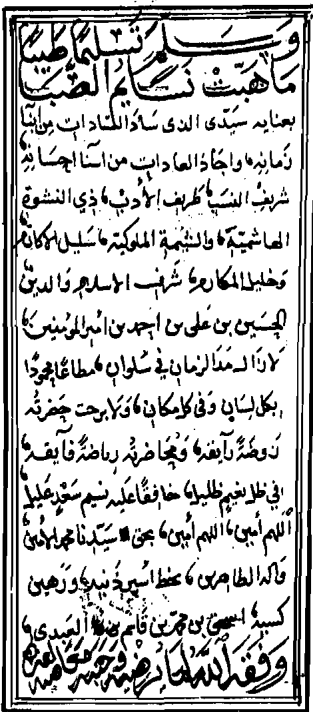 وَسَلَّمَ تَسْلِيمًا طَيِّبًا
مَا هَبَّتْ نَسَايِمُ الصَّبَا
بعنايه سَيّدى الذى سَادَ السَّادات مِن ابْنآ
زمانِه، واجَادَ العادات من اسنآ احسانِه
شريفُ النسَبِ، ظريف الأدبْ، ذي النشوة
الهاشميّة، والشيمة الملوكية، سَليل الاكارم
وخليل المكارم، شرف الاسلام والدين
الحسين بن على بن احمد بن امير المؤمنين،
لازال مدَا الزمان في سلوان، مطاعًا محمودًا
بكل لسَان وفى كل مكان، وَلا برحت حضرتُه
رَوضَةً رَايقه، ومحَاضرتُه رياضةً فايقه،
في ظل نعيم ظليل، خافقًا عليه نسيم سَعْدٍ عليل،
اللهم أمين، اللهم أمين، بحق سَيّدنا محمد الأمين
وآله الطاهرين، بخط اسير ذنبه، ورَهين
كسبه، بن محمد بن قاسم العبدي،
وَفَّقَهُ اللّٰهُ لِمَا يُرْضِيهِ